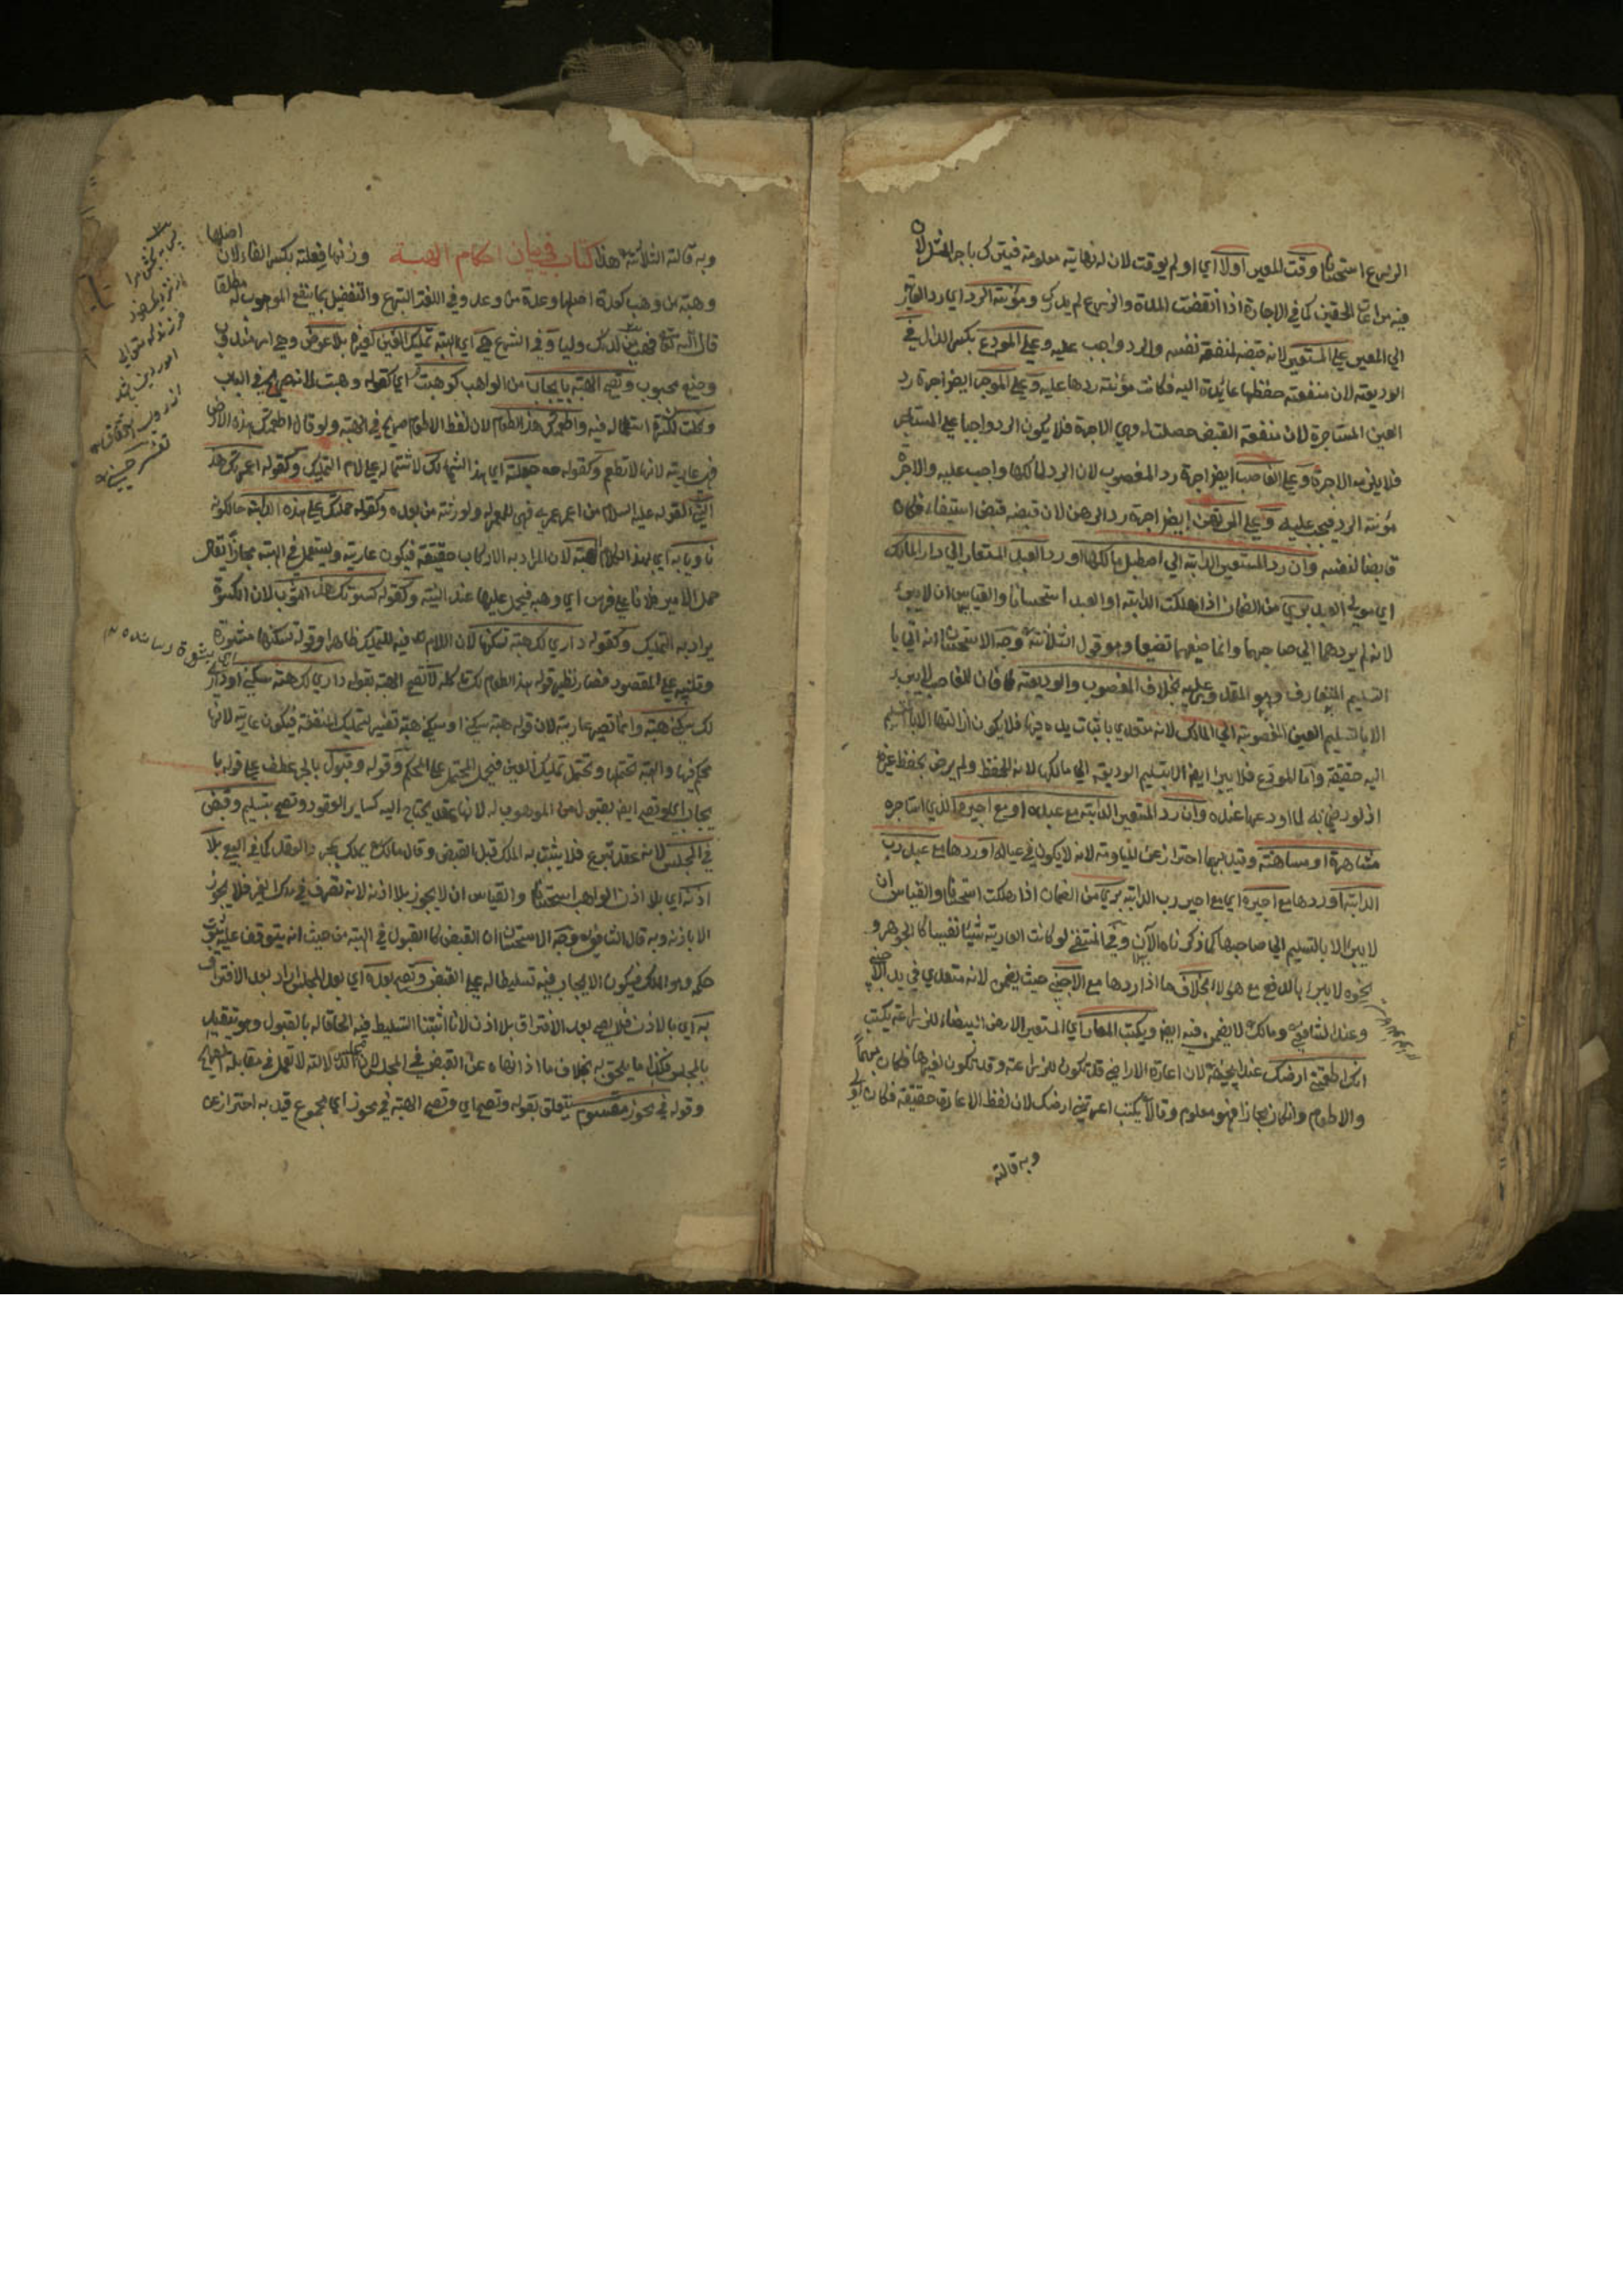 الزرع استحسانا وقت المعير اولا اي او لم يوقت لان له نهاية معلومة فيترك باجر المثل لان
فيه مراعات الحقين كما في الاجارة اذا انقضت المدة والزرع لم يدرك ومؤنة الرد اي رد العارية
الي المعير علي المستعير لانه قبضه لمنفعة نفسه والرد واجب عليه وعلي المودع بكسر الدال في
الوديعة لان منفعة حفظها عايدة اليه فكانت مؤنة ردها عليه وعلي الموجر ايض اجرة رد
العين المستاجرة لان منفعة القبض حصلت له وهي الاجرة فلا يكون الرد واجبا علي المستاجر
فلا يلزمه الاجرة وعلي الغاصب ايض اجرة رد المغصوب لان الرد لمالكها واجب عليه والاجرة
مؤنة الرد فيجب عليه وعلي المرتهن ايض اجرة رد الرهن لان قبضه قبض استيفاء فكان
قابضا لنفسه وان رد المستعير الدابة الي اصطبل مالكها او رد العبد المستعار الي دار المالك
اي مولي العبد بري من الضمان اذا هلكت الدابة او العبد استحسانا والقياس ان لا يبرء
لانه لم يردهما الي صاحبهما وانما ضيعهما تضيعا وهو قول الثلاثة وجه الاستحسان انه اتي با
التسليم المتعارف وهو بخلاف المغصوب والوديعة فان الغاصب لا يبرء
الا بالتسليم العين المغصوبة الي المالك لانه متعدي باثبات يده فيها فلا يكون ازالتها الا بالتسليم
اليه حقيقة واما المودع فلا يبرا ايض الا بتسليم الوديعة الي مالكها لانه للحفظ ولم يرض بحفظ غيره
اذ لو رضي به لما اودعها عنده وان رد المستعير الدابة مع عبده او مع اجيره الذي استاجره
مشاهرة او مسانهة وقيد بهما احترازا عن المياومة لانه لا يكون في عياله او ردها مع عبد رب
الدابة او ردها مع اجيره اي مع اجير رب الدابة بري من الضمان اذا هلكت استحسانا والقياس ان
لا يبرا الا بالتسليم الي صاحبها كما ذكرناه الآن وفي المنتقي لو كانت العارية شيئا نفيسا كالجوهر و
نحوه لا يبرا بالدفع مع هؤلاء بخلاف ما اذا ردها مع الاجنبي حيث يضمن لانه متعدي في يد الاجنبي
وعند الشافعي ومالك لا يضمن فيه ايض ويكتب المعار اي المستعير الارض البيضاء للزراعة يكتب
انك اطعمتني ارضك عند ابيحنيفة لان اعارة الاراضي قد تكون للزراعة وقد تكون لغيرها فكان مبهما
والاطعام وان كان مجازا فهو معلوم وقالا يكتب اعرتني ارضك لان لفظ الاعارة حقيقة فكان اولي
وبه قالت
وبه قالت الثلاثة هذا كتاب في بيان احكام الهبة وزنها فعلة بكسر الفاء لان اصلها
وهبة من وهب كعدة اصلها وعدة من وعد وفي اللغة التبرع والتفضيل بما ينفع الموهوب له مطلقا
قال الله تعا فهب لي من لدنك وليا وفي الشرع هي اي الهبة تمليك العين لغيره بلا عوض وهي امر مندوب
وضيع محبوب وتصح الهبة بايجاب من الواهب كوهبت اي كقوله وهبت لانه صريح في الباب
ونحلت لكثرة استعماله فيه واطعمتك هذا الطعام لان لفظ الاطعام صريح في الهبة ولو قال اطعمتك هذه الارض
فهي عارية لانها لا تطعم وكقوله جعلته اي هذا الشيء لك لاشتماله علي لام التمليك وكقوله اعمرتك هذا
الشيء لقوله عليه السلام من اعمر عمري فهي للمعمر له ولورثته من بعده وكقوله حملتك علي هذه الدابة حال كونه
ناويا به اي بهذا الكلام الهبة لان المراد به الاركاب حقيقة فيكون عارية ويستعمل في الهبة مجازا يقال
حمل الامير فلانا علي فرس اي وهبه فيحمل عليها عند النية وكقوله كسوتك هذا الثوب لان الكسوة
يراد به التمليك وكقوله داري لك هبة تسكنها لان اللام فيه للتمليك ظاهرا وقوله تسكنها مشورة
وتنبيه علي المقصود فصار نظير قوله هذا الطعام لك تاكله لا تصح الهبة بقوله داري لك هبة سكني او داري
لك سكني هبة وانما تصير عارية لان قوله هبة سكني او سكني هبة تفسير لتمليك المنفعة فيكون عارية لانها
محكم فيها والهبة تحتملها وتحتمل تمليك العين فيحمل المحتمل علي المحكم وقوله وقبول بالجر عطف علي قوله با
يجاب اي وتصح ايض بقبول من الموهوب له لانها عقد يحتاج اليه كساير العقود وتصح بتسليم وقبض
في المجلس لانه عقد تبرع فلا يثبت به الملك قبل القبض وقال مالك يملك بمجرد العقد كما في البيع بلا
اذنه اي بلا اذن الواهب استحسانا والقياس ان لا يجوز بلا اذنه لانه تصرف في ملك الغير فلا يجوز
الا باذنه وبه قال الشافعي وجه الاستحسان ان القبض كالقبول في الهبة من حيث انه يتوقف عليه ثبوت
حكمه وهو الملك فيكون الايجاب فيه تسليطا له علي القبض وتصح بعده اي بعد المجلس اراد بعد الافتراق
به اي بالاذن فلا يصح بعد الافتراق بلا اذن لانا اثبتنا التسليط فيه الحاقا له بالقبول وهو يتقيد
بالمجلس فكذا ما يلحق به بخلاف ما اذا نهاه عن القبض في المجلس لان الدلالة لا تعمل في مقابلة الصريح
وقوله في محوز مقسوم يتعلق بقوله وتصح اي وتصح الهبة في محوز اي مجموع قيد به احترازا عن
اي مشورة رسانده
از نزديك خود
فرزند كه متولي
امور دين باشد
تفسير حسيني